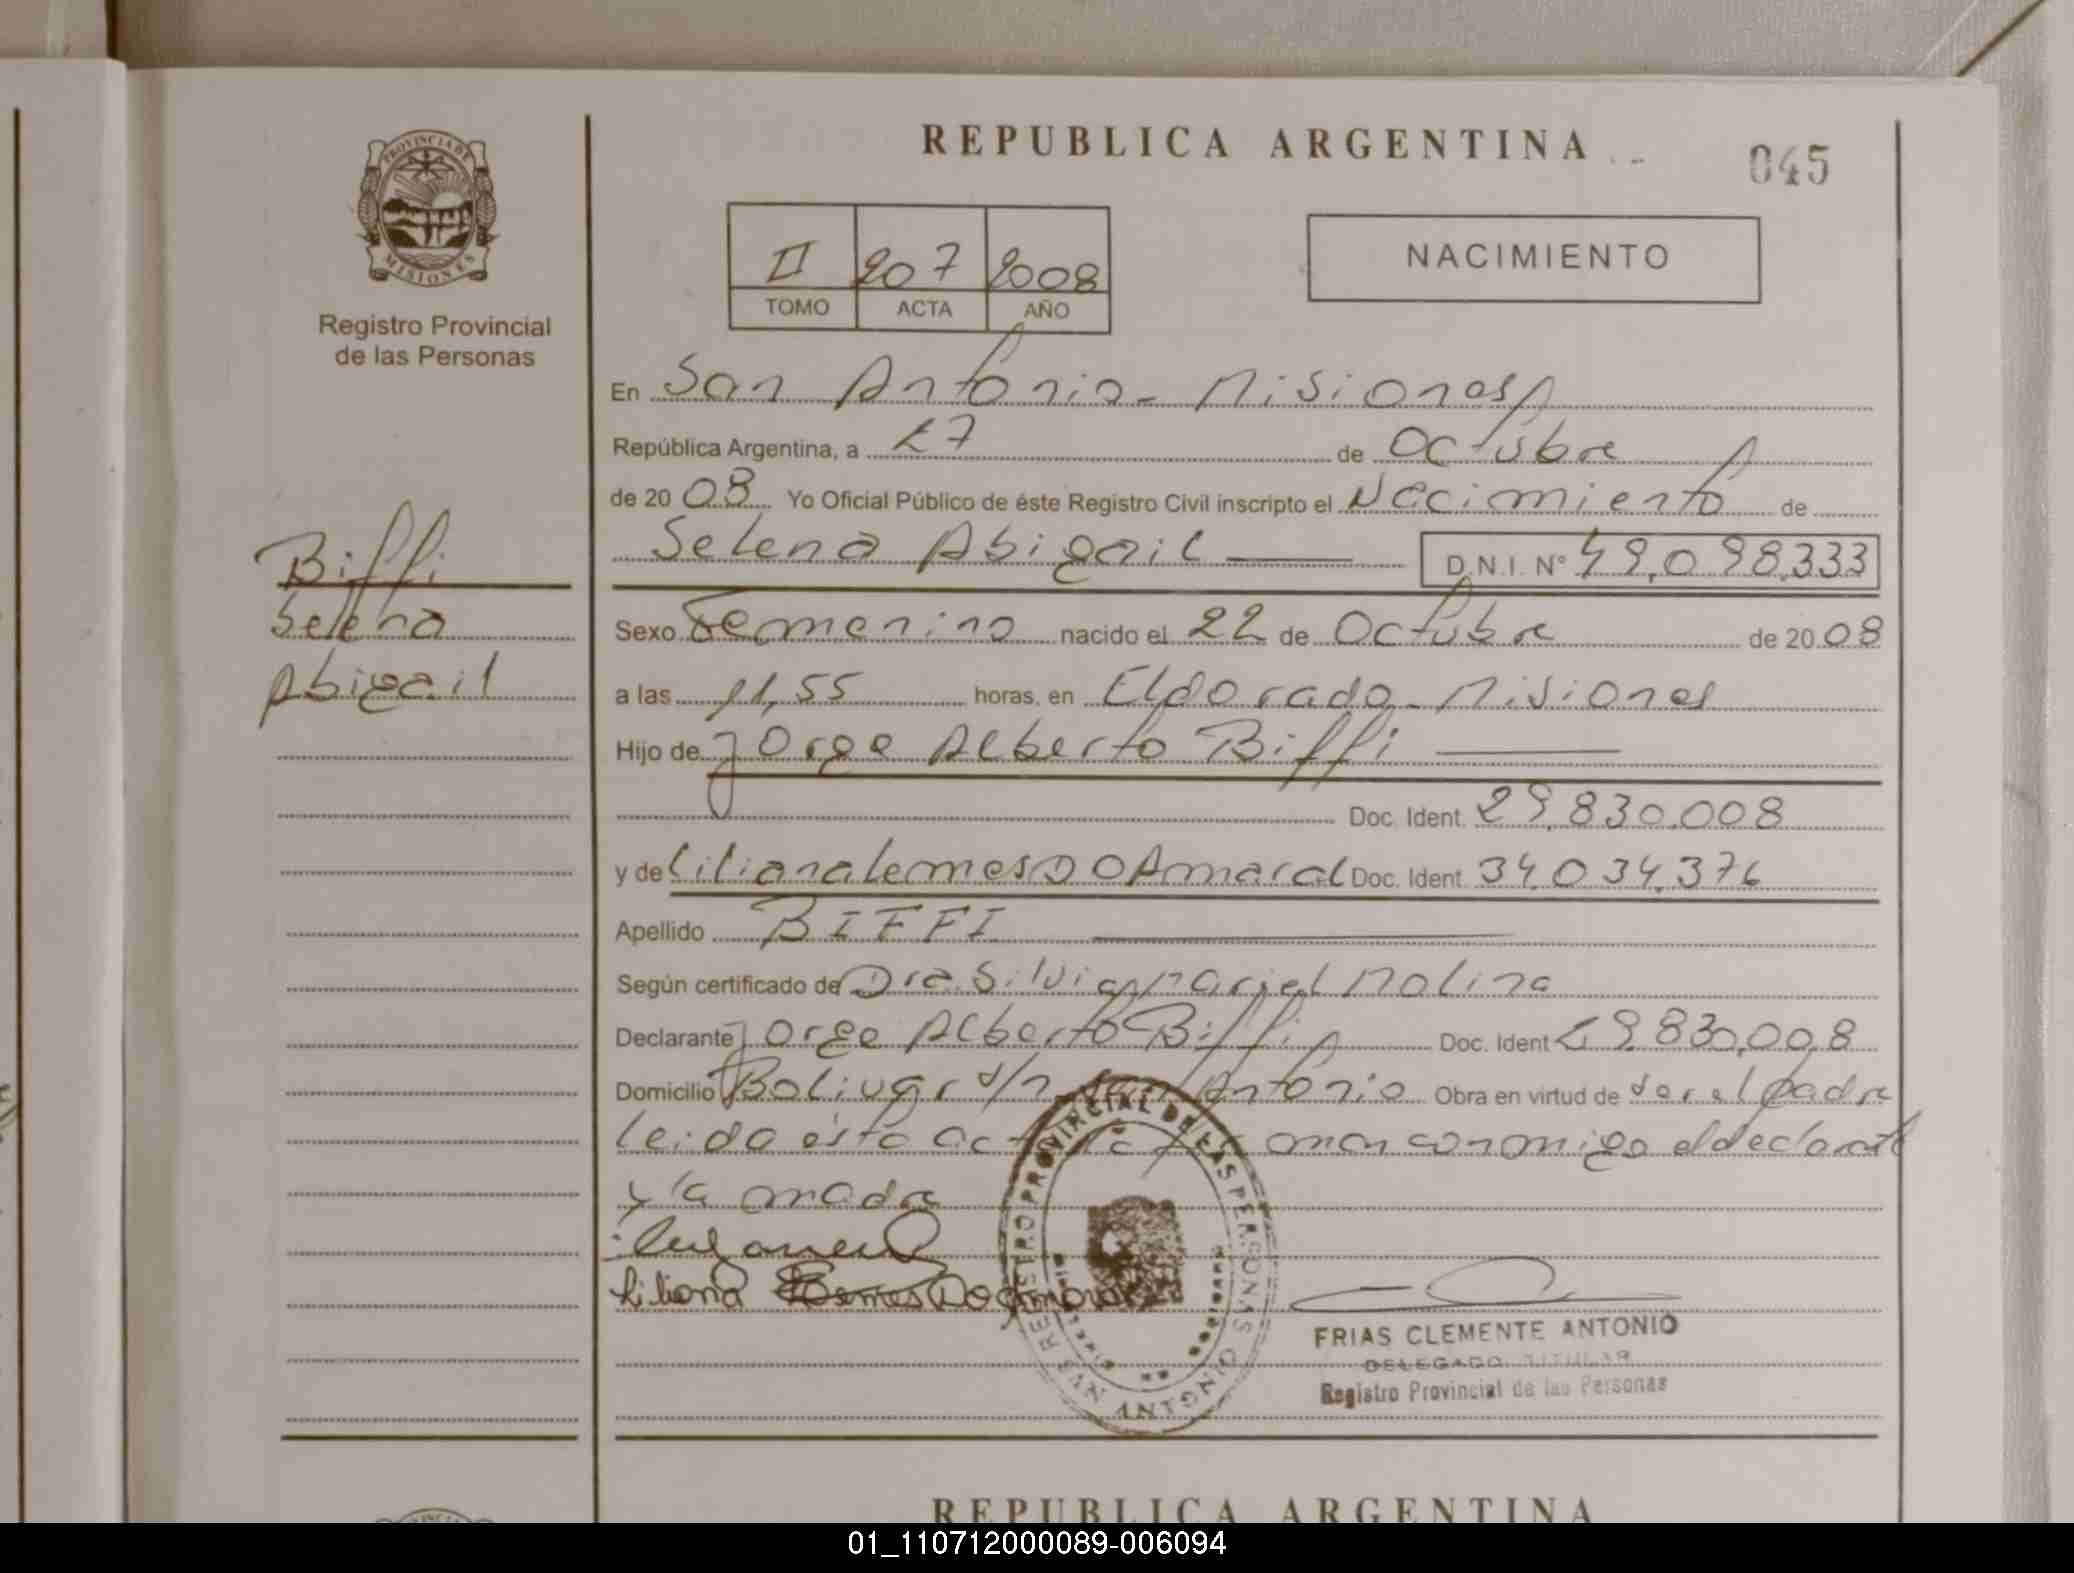 REPUBLICA ARGENTINA
045
PROVINCIA DE
MISIONES
Registro Provincial
de las Personas
II 207 2008
TOMO ACTA AÑO
NACIMIENTO
En San Antonio - Misiones
República Argentina, a 27 de Octubre
de 2008 Yo Oficial Público de éste Registro Civil inscripto el Nacimiento de
Selena Abigail D.N.I. Nº 49.098.333
Biffi
Selena
Abigail
Sexo Femenino nacido el 22 de Octubre de 2008
a las 11,55 horas, en Eldorado - Misiones
Hijo de Jorge Alberto Biffi
Doc. Ident. 29.830.008
y de Liliana Lemes Do Amaral Doc. Ident. 34.034.376
Apellido BIFFI
Según certificado de Dra. Silvia Mariel Molina
Declarante Jorge Alberto Biffi Doc. Ident 29.830.008
Domicilio Bolivar s/n San Antonio Obra en virtud de ser el padre
leida esta acta la firman conmigo el declarante
y la madre
Liliana Lemes Do Amaral
REGISTRO PROVINCIAL DE LAS PERSONAS
SAN ANTONIO
FRIAS CLEMENTE ANTONIO
DELEGADO TITULAR
Registro Provincial de las Personas
REPUBLICA ARGENTINA
01_110712000089-006094